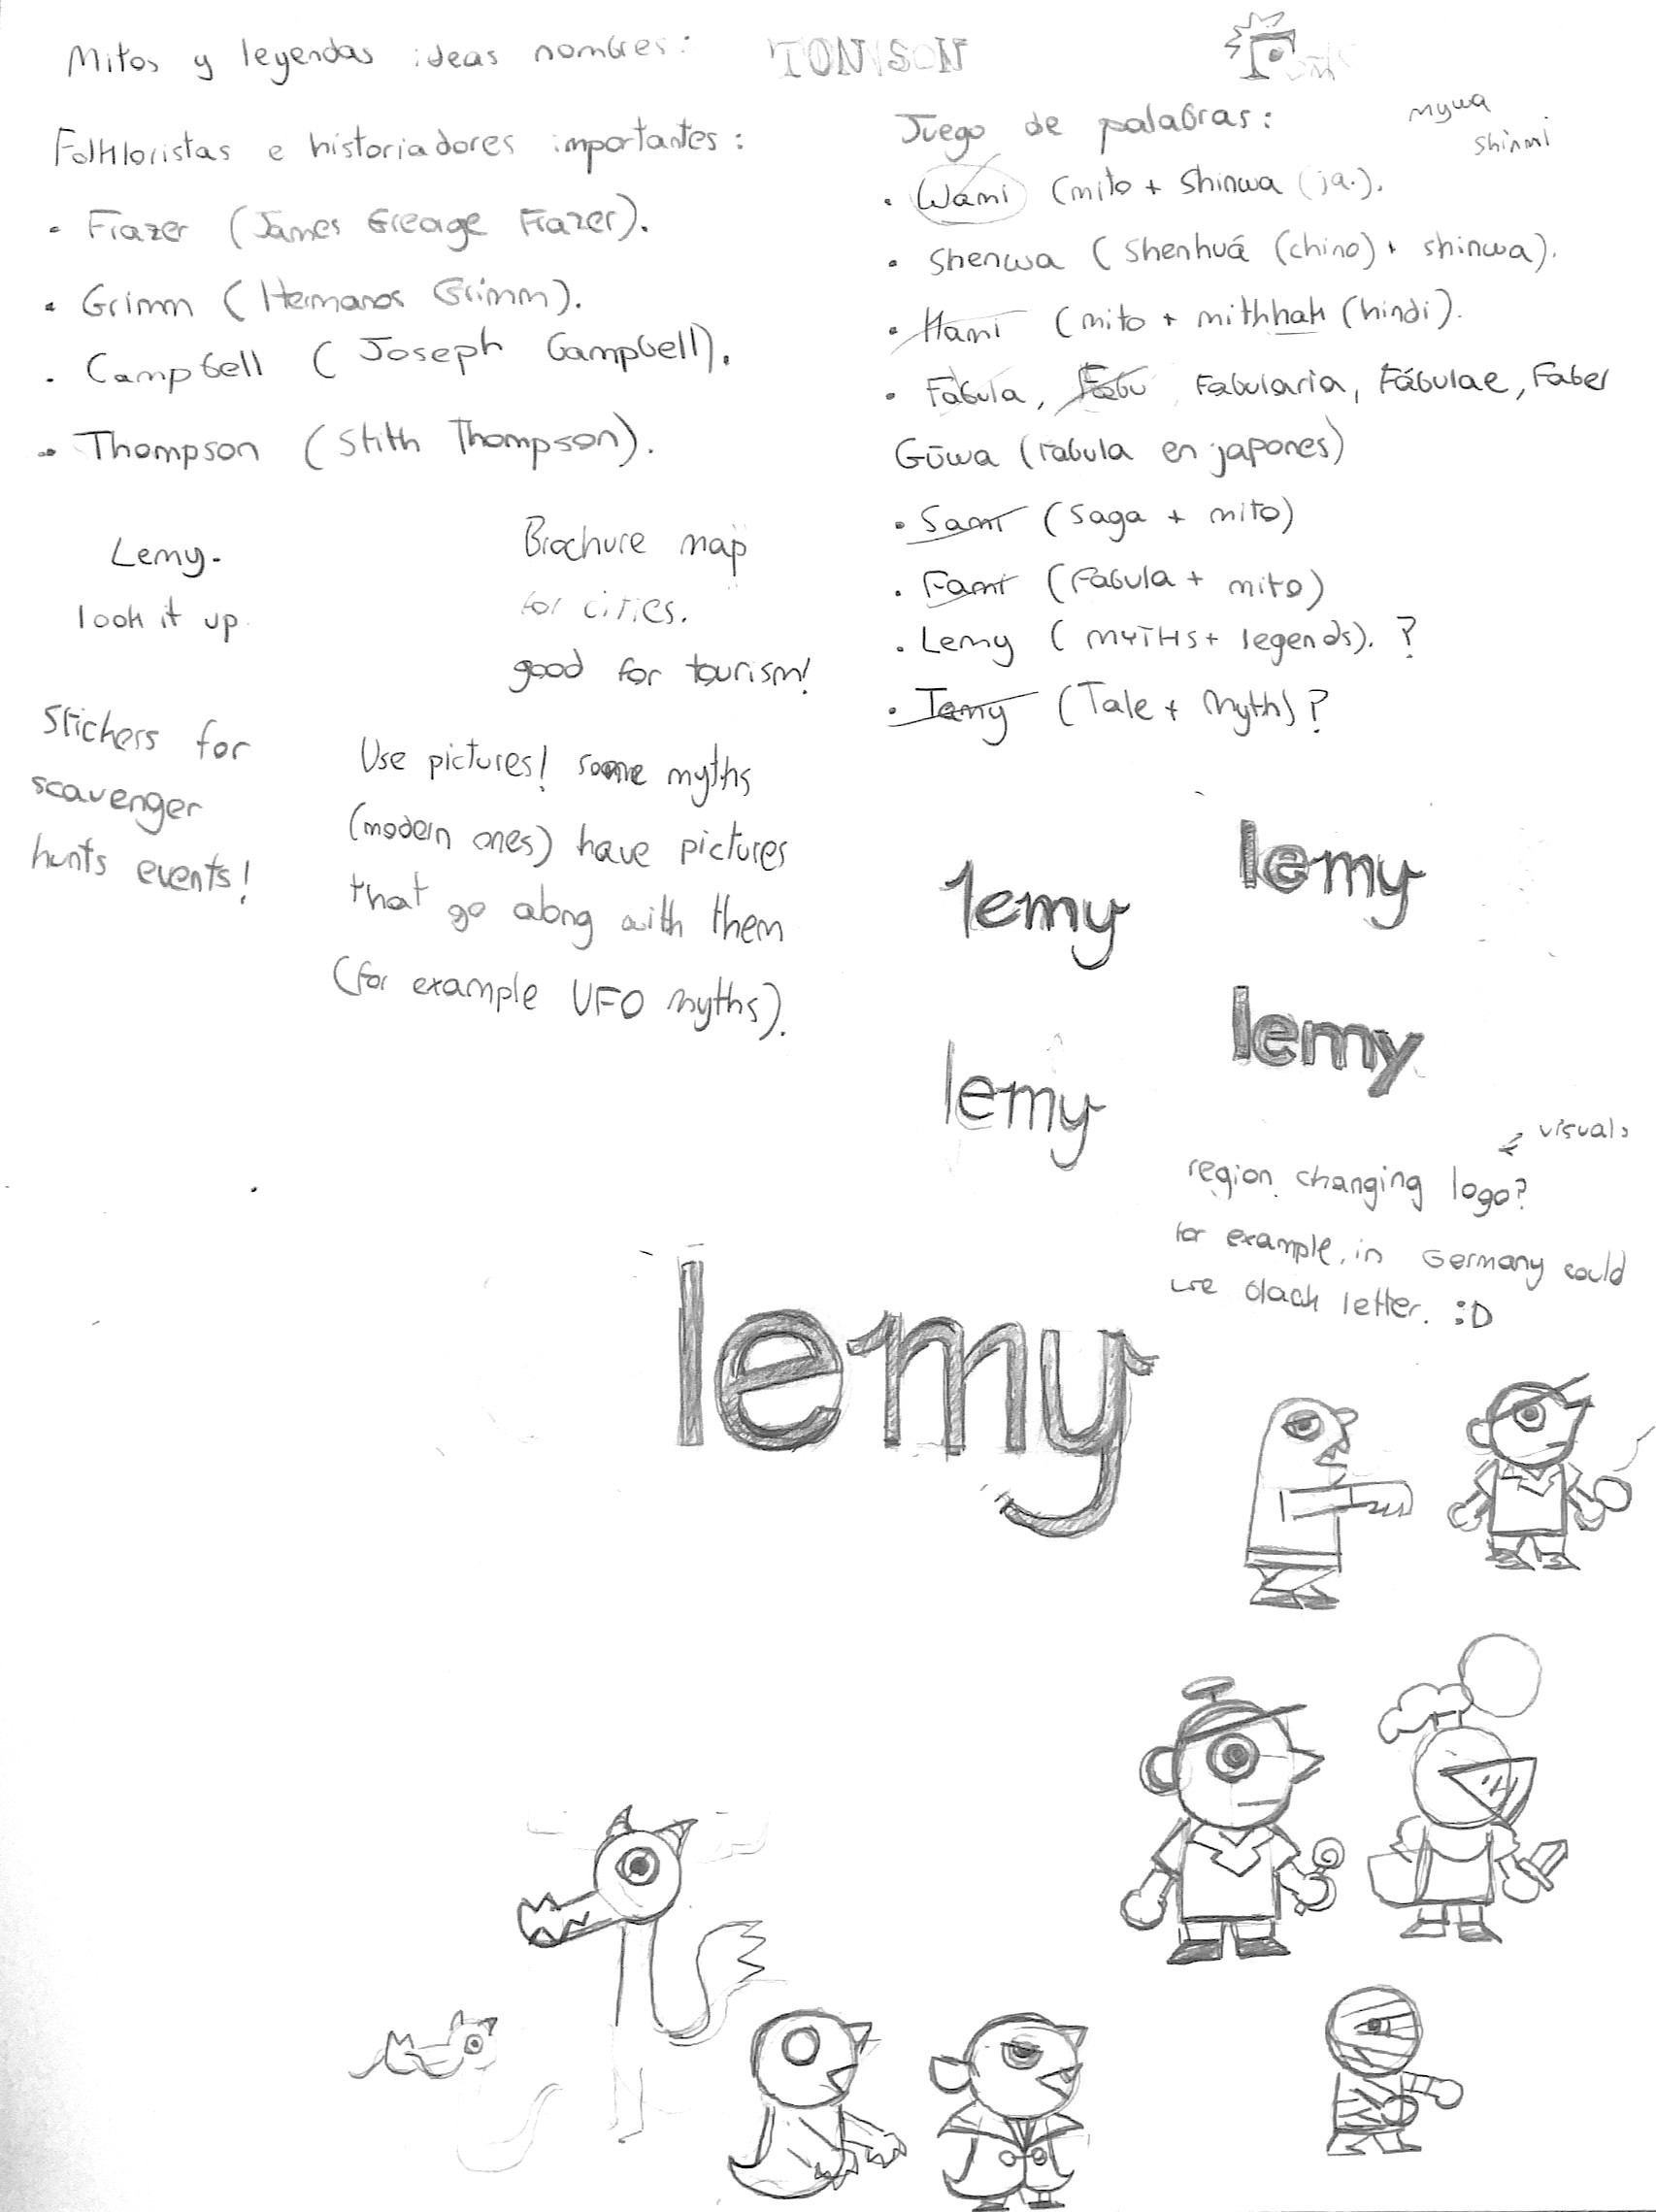 Mitos y leyendas ideas nombres:
TONYSON
Folkloristas e historiadores importantes:
• Frazer (James Greorge Frazer).
• Grimm (Hermanos Grimm).
• Campbell (Joseph Campbell).
• Thompson (Stith Thompson).
Juego de palabras:
mywa
shinmi
• Wami (mito + Shinwa (ja.).
• Shenwa (Shenhuá (chino) + shinwa).
• Hami (mito + mithhak (hindi).
• Fabula, Fabu Fabularia, Fábulae, Faber
Gūwa (fabula en japones)
• Sami (Saga + mito)
• Fami (Fabula + mito)
• Lemy (MYTHS + legends). ?
• Temy (Tale + Myth) ?
Lemy.
look it up
Brochure map
for cities.
good for tourism!
Stickers for
scavenger
hunts events!
Use pictures! some myths
(modern ones) have pictures
that go along with them
(for example UFO Myths).
lemy
lemy
lemy
lemy
visual
region changing logo?
for example, in Germany could
use black letter. :D
lemy